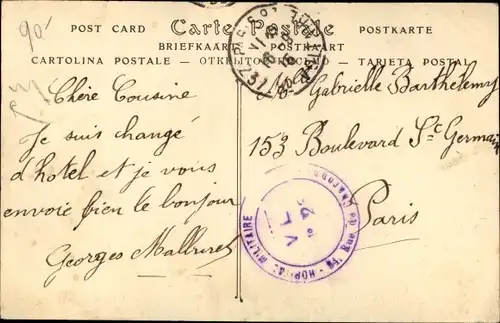 90-
POST CARD Carte Postale POSTKARTE
BRIEFKAART POSTKART
CARTOLINA POSTALE - OTKRITOE PISMO - TARJETA POSTAL
Chère Cousine
Je suis changé
d'hotel et je vous
envoie bien le bonjour
Georges
Gabrielle Barthélemy
153 Boulevard St Germain
Paris
HOPITAL MILITAIRE
V L